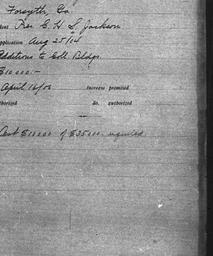 Forsyth, Ga.
Pres. C. H. S. Jackson
pplication Aug 25/04
Additions to Coll Bldgs.
$10000.-
April 16/06 Increase promised
thorized do. authorized
last $10000 of $35000. required